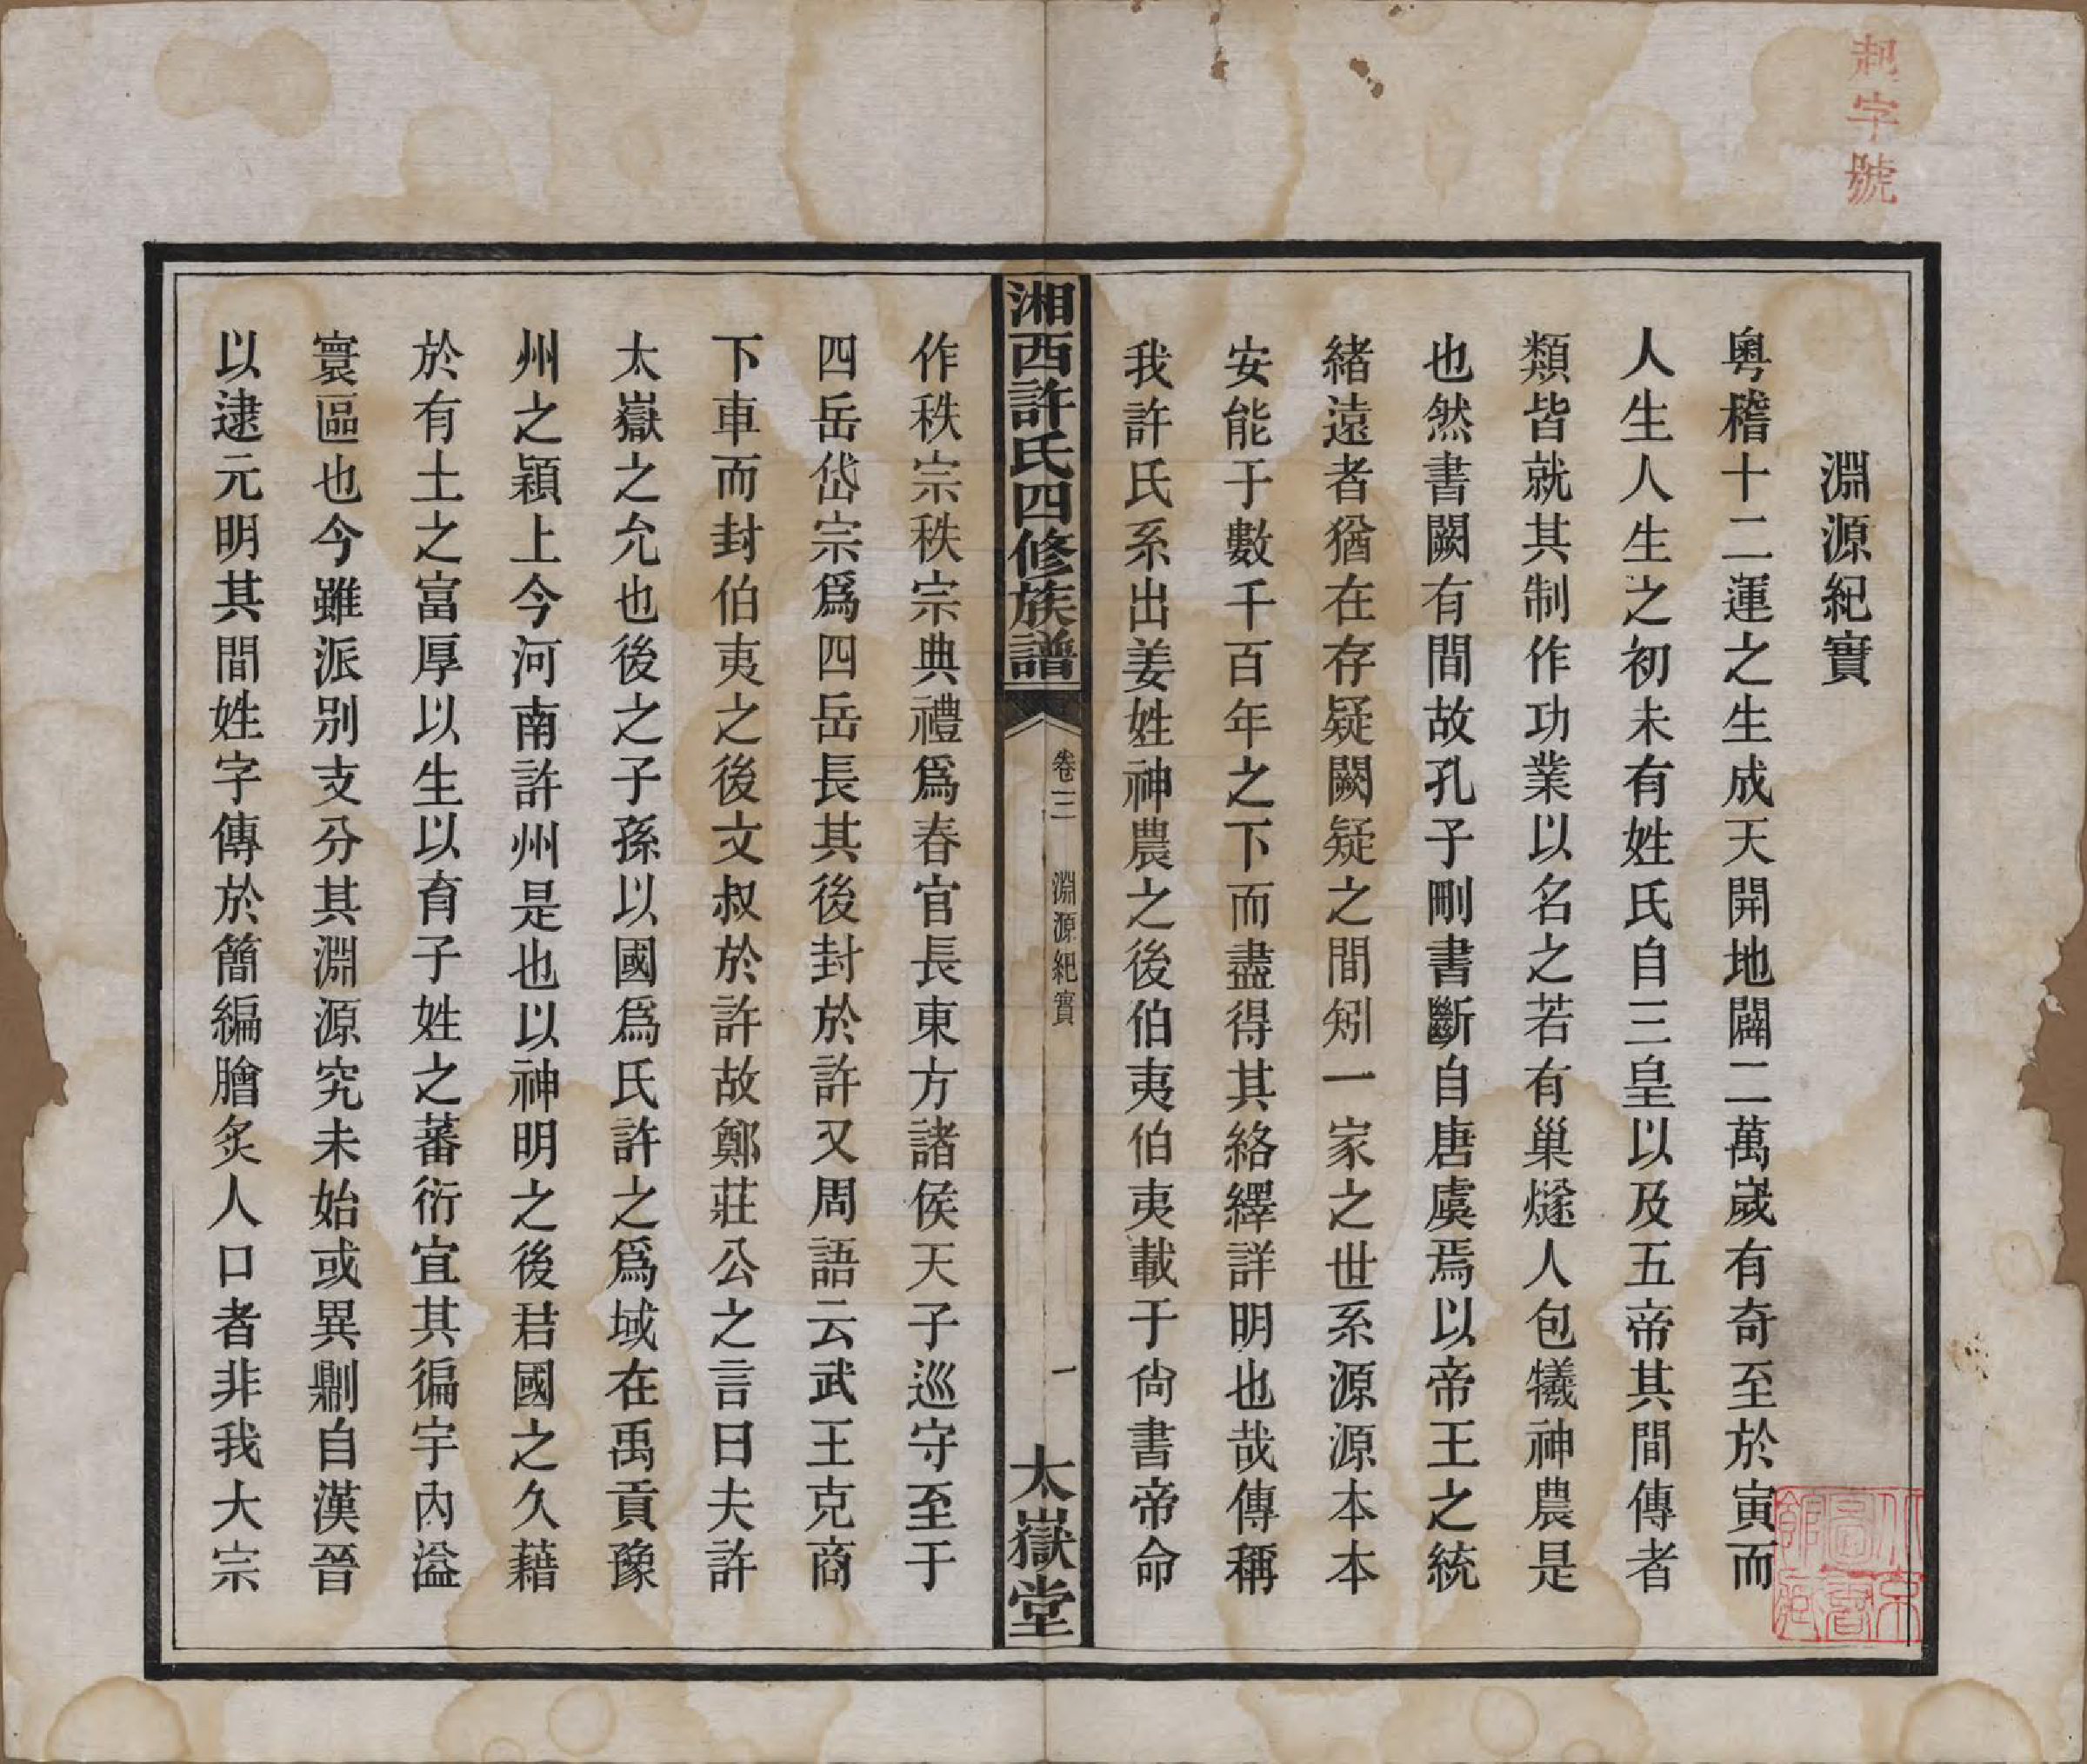 起字號
淵源紀實
粵稽十二運之生成天開地闢二萬歲有奇至於寅而
人生人生之初未有姓氏自三皇以及五帝其間傳者
類皆就其制作功業以名之若有巢燧人包犧神農是
也然書闕有間故孔子刪書斷自唐虞焉以帝王之統
緒遠者猶在存疑闕疑之間矧一家之世系源源本本
安能于數千百年之下而盡得其絡繹詳明也哉傳稱
我許氏系出姜姓神農之後伯夷伯夷載于尙書帝命
湘西許氏四修族譜
卷三
淵源紀實
一
太嶽堂
作秩宗秩宗典禮爲春官長東方諸侯天子巡守至于
四岳岱宗爲四岳長其後封於許又周語云武王克商
下車而封伯夷之後文叔於許故鄭莊公之言曰夫許
太嶽之允也後之子孫以國爲氏許之爲域在禹貢豫
州之潁上今河南許州是也以神明之後君國之久藉
於有土之富厚以生以育子姓之蕃衍宜其徧宇內溢
寰區也今雖派别支分其淵源究未始或異剻自漢晉
以逮元明其間姓字傳於簡編膾炙人口者非我大宗
京圖書館